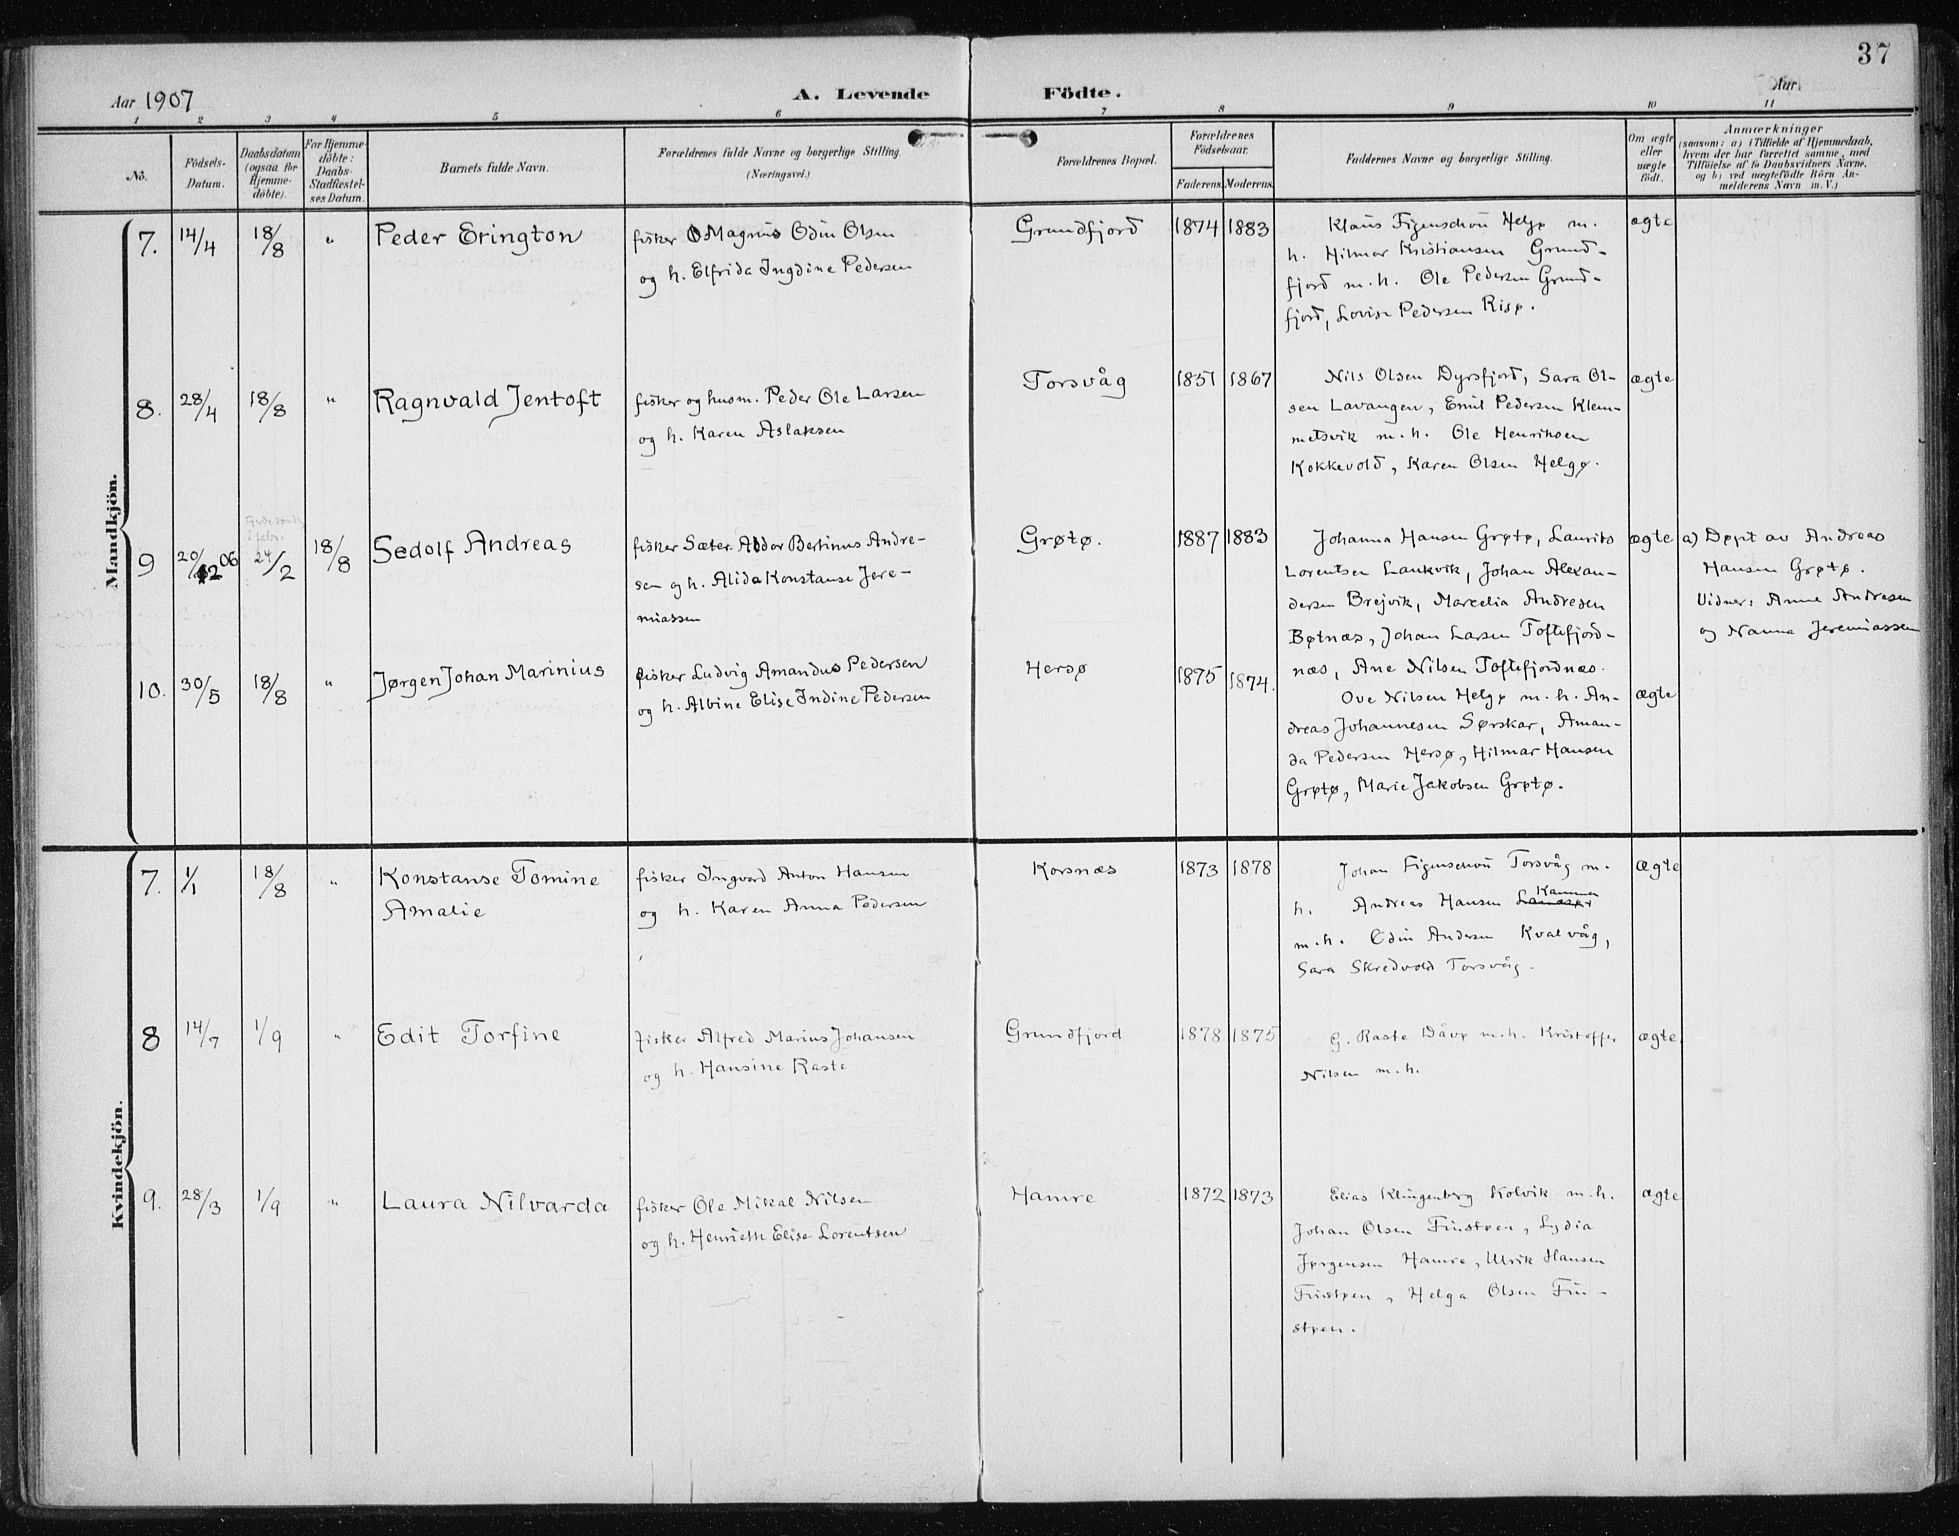 37
Aar 1907
A. Levende Födte.
Aar
1 2 3 4 5 6 7 8 9 10 11
No.
Födsels-
Datum.
Daabsdatum
(ogsaa for
Hjemme-
döbte).
For Hjemme-
döbte:
Daabs-
Stadfæstel-
ses Datum.
Barnets fulde Navn.
Forældrenes fulde Navne og borgerlige Stilling.
(Næringsvei.)
Forældrenes Bopæl.
Forældrenes
Födselsaar.
Faderens. Moderens.
Faddernes Navne og borgerlige Stilling.
Om ægte
eller
uægte
födt.
Anmærkninger
(saasom: a) i Tilfælde af Hjemmedaab,
hvem der har forrettet samme, med
Tilföielse af to Daabsvidners Navne,
og b) ved uægtefödte Börn An-
melderens Navn m. V.)
Mandkjön.
7. 14/4 18/8 " Peder Erington
fisker Magnus Odin Olsen
og h. Elfrida Ingdine Pedersen
Grundfjord 1874 1883
Klaus Figenschou Helgø m.
h. Hilmar Kristiansen Grund-
fjord m.h. Ole Pedersen Grund-
fjord, Lovise Pedersen Risø.
ægte
8. 28/4 18/8 " Ragnvald Jentoft
fisker og husm. Peder Ole Larsen
og h. Karen Aslaksen
Torsvåg 1851 1867
Nils Olsen Dyrsfjord, Sara Ol-
sen Lavangen, Emil Pedersen Klem-
metsvik m.h. Ole Henriksen
Kokkevold, Karen Olsen Helgø.
ægte
9 20/12 06 24/2 18/8 Sedolf Andreas
fisker Sæter. Aldor Bertinus Andre-
sen og h. Alida Konstanse Jere-
miassen
Grøtø. 1887 1883
Johanna Hansen Grøtø, Laurits
Lorentsen Lankvik, Johan Alexan-
dersen Brejvik, Marcelia Andresen
Bøtnæs, Johan Larsen Toftefjord-
næs, Ane Nilsen Toftefjordnæs.
ægte
a) Døpt av Andreas
Hansen Grøtø.
Vidner: Anne Andresen
og Nanna Jeremiassen
10. 30/5 18/8 " Jørgen Johan Marinius
fisker Ludvig Amandus Pedersen
og h. Albine Elise Indine Pedersen
Hersø 1875 1874.
Ove Nilsen Helgø m.h. An-
dreas Johannesen Sørskar, Aman-
da Pedersen Hersø, Hilmar Hansen
Grøtø, Marie Jakobsen Grøtø.
ægte
Kvindekjön.
7. 1/1 18/8 " Konstanse Tomine
Amalie
fisker Ingvard Anton Hansen
og h. Karen Anna Pedersen
Korsnæs 1873 1878
Johan Figenschou Torsvåg m.
h. Andreas Hansen Kammen
m.h. Odin Andersen Kvalvåg,
Sara Skredvold Torsvåg.
ægte
8 14/7 1/9 " Edit Torfine
fisker Alfred Marius Johansen
og h. Hansine Raste
Grundfjord 1878 1875
G. Raste Dåvø m.h. Kristoffer
Nilsen m.h.
ægte
9. 28/3 1/9 " Laura Nilvarda
fisker Ole Mikal Nilsen
og h. Henrieth Elise Lorentsen
Hamre 1872 1873
Elias Klingenberg Kolvik m.h.
Johan Olsen Finstøen, Lydia
Jørgensen Hamre, Ulrik Hansen
Finstøen, Helga Olsen Fin-
støen.
ægte